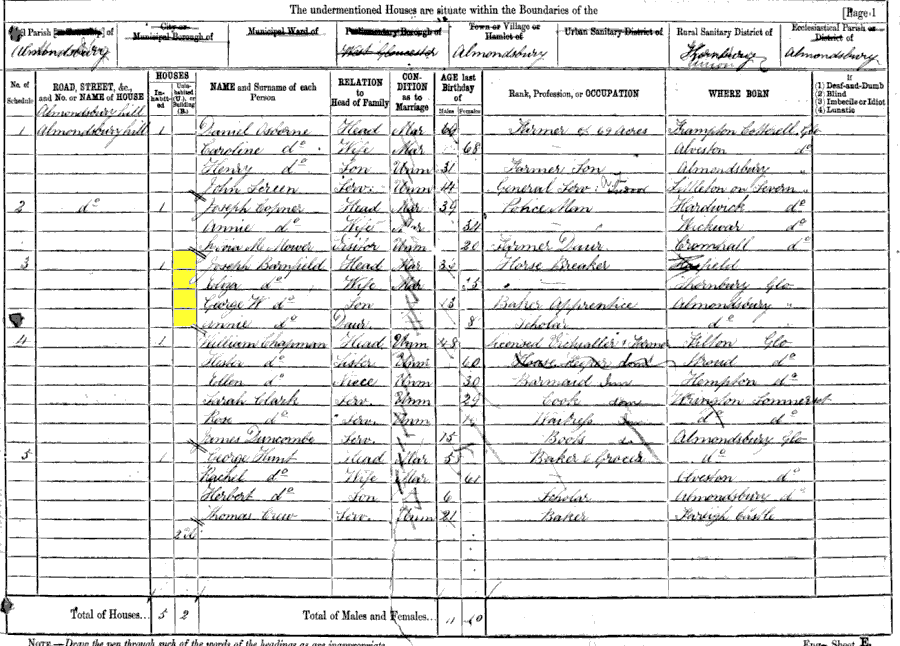 The undermentioned Houses are situate within the Boundaries of the [Page 1
Parish [or Township] of Almondsbury
City or Municipal Borough of
Municipal Ward of
Parliamentary Borough of West Gloucester
Town or Village or Hamlet of Almondsbury
Urban Sanitary District of
Rural Sanitary District of Thornbury Union
Ecclesiastical Parish or District of Almondsbury
No. of Schedule
ROAD, STREET, &c., and No. or NAME of HOUSE
HOUSES In-habited Unin-habited (U.), or Building (B.)
NAME and Surname of each Person
RELATION to Head of Family
CON-DITION as to Marriage
AGE last Birthday of Males Females
Rank, Profession, or OCCUPATION
WHERE BORN
If (1) Deaf-and-Dumb (2) Blind (3) Imbecile or Idiot (4) Lunatic
Almondsbury hill
1 Almondsbury hill 1 Daniel Osborne Head Mar 60 Farmer of 69 Acres Frampton Cotterell Glo
Caroline do Wife Mar 68 — Alveston do
Henry do Son Unm 31 Farmer Son Almondsbury "
John Screen Serv. Unm 44 General Serv Littleton on Severn "
2 do 1 Joseph Copner Head Mar 39 Police Man Hardwick do
Annie do Wife Mar 34 — Wickwar do
M. Mower Visitor Unm 20 Farmer Daur Cromhall do
3 1 Joseph Barnfield Head Mar Horse Breaker
Wife Mar — Thornbury Glo
George W do Son 13 Baker Apprentice Almondsbury "
Annie do Daur. 8 Scholar do
4 1 William Chapman Head Unm 48 Licensed Victualler & Farmer Filton Glo
do Sister Unm 60 House Keeper dom Stroud do
Ellen do Niece Unm 30 Barmaid Inn Hempton do
Sarah Clark Serv. Unm 29 Cook dom Wrington Sommerset
Rose do Serv. Unm Waitress do do
James Duncombe Serv. 15 Boots Almondsbury Glo
5 1 George Hunt Head Mar Baker & Grocer do
Rachel do Wife Mar 61 Alveston do
Herbert do Son 6 Scholar Almondsbury do
Thomas Crew Serv. Unm 21 Baker Castle
2 u
Total of Houses... 5 2 Total of Males and Females... 11 10
NOTE.—Draw the pen through such of the words of the headings as are inappropriate. Eng.—Sheet E.